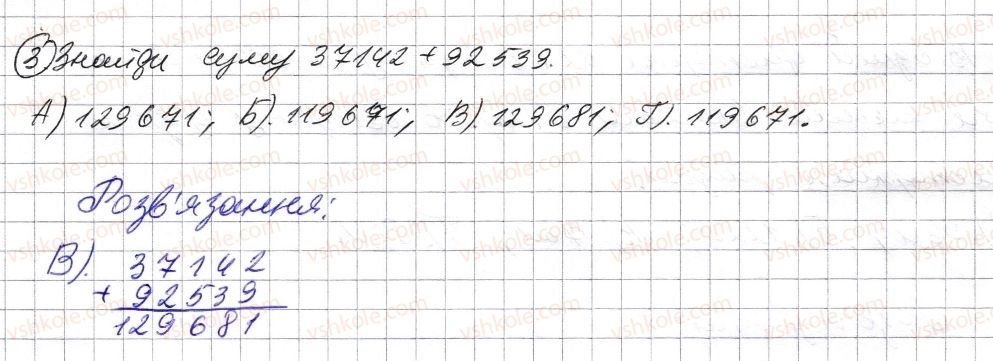 3 Знайди суму 37142 + 92539.
А) 129671; Б). 119671; В). 129681; Г). 119671.
Розв'язання:
В). 37142
+ 92539
129681